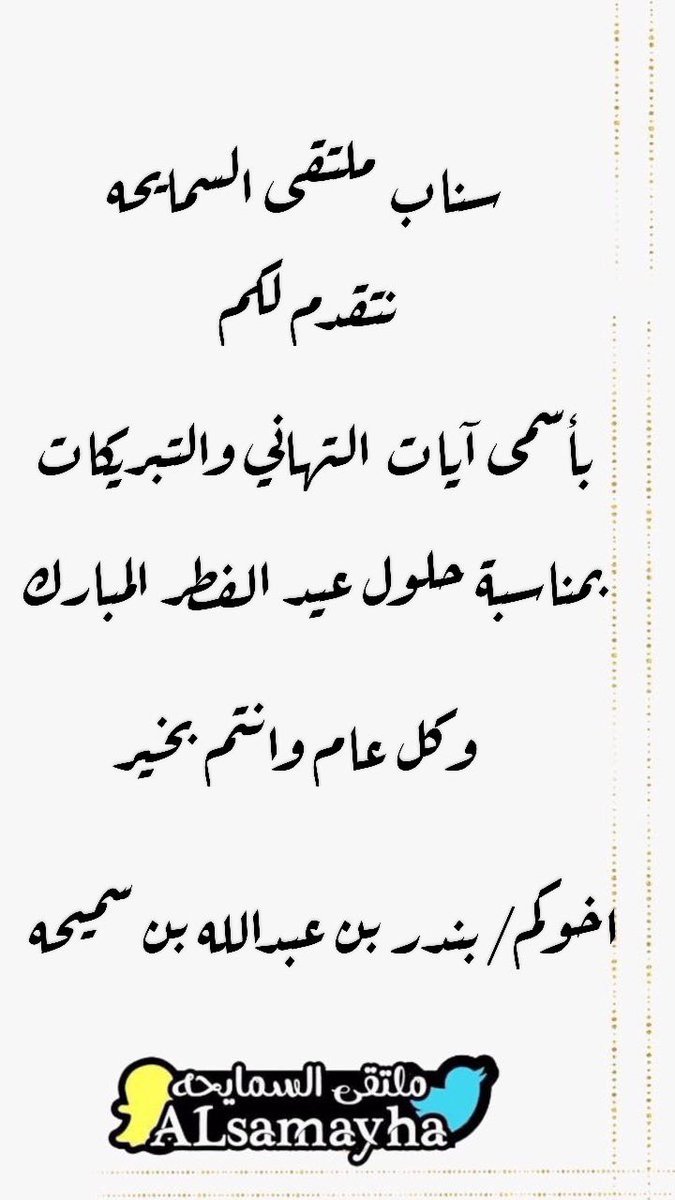 سناب ملتقى السمايحه
نتقدم لكم
بأسمى آيات التهاني والتبريكات
بمناسبة حلول عيد الفطر المبارك
وكل عام وانتم بخير
اخوكم/ بندر بن عبدالله بن سميحه
ملتقى السمايحه
ALsamayha